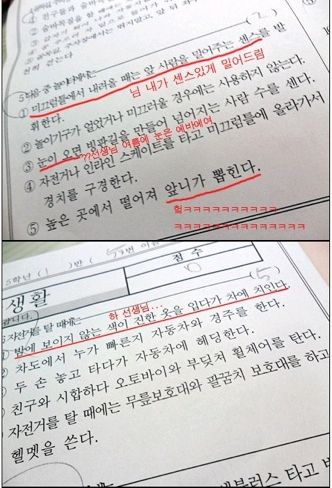 미끄럼틀에서 내려올 때는 앞 사람을 밀어주는 센스를 발
휘한다.
님 내가 센스있게 밀어드림
② 놀이기구가 얼었거나 미끄러울 경우에는 사용하지 않는다.
③ 눈이 오면 빙판길을 만들어 넘어지는 사람 수를 센다.
??선생님 여름에 눈은 에바에여
④ 자전거나 인라인 스케이트를 타고 미끄럼틀에 올라가서
경치를 구경한다.
⑤ 높은 곳에서 떨어져 앞니가 뽑힌다.
헠ㅋㅋㅋㅋㅋㅋㅋㅋㅋㅋ
ㅋㅋㅋㅋㅋㅋㅋㅋㅋㅋㅋㅋㅋㅋ
5학년 ( 1 ) 반 (
점 수
생활
하 선생님...
자전거를 탈 때에는
(5)
밤에 보이지 않는 색이 진한 옷을 입다가 차에 치인다.
차도에서 누가 빠른지 자동차와 경주를 한다.
두 손 놓고 타다가 자동차에 헤딩한다.
친구와 시합하다 오토바이와 부딪쳐 휠체어를 탄다.
자전거를 탈 때에는 무릎보호대와 팔꿈치 보호대를 하고
헬멧을 쓴다.